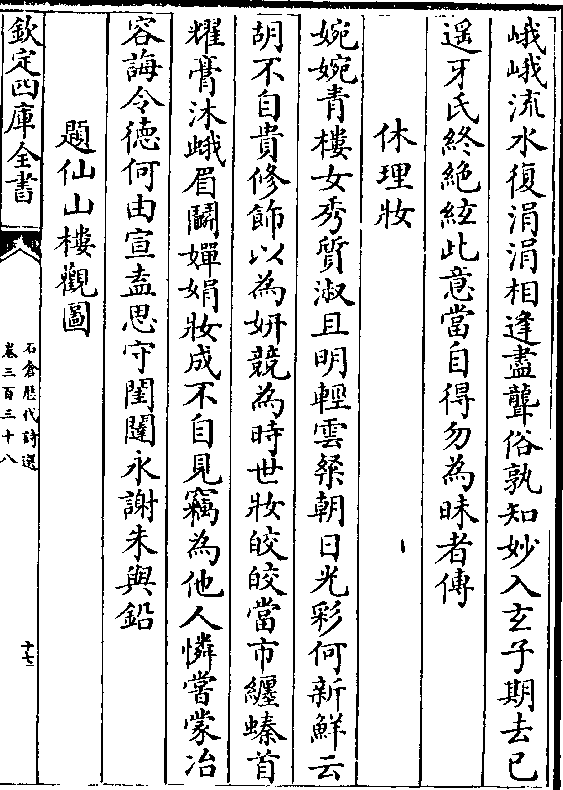 峨峨流水復涓涓相逢盡聾俗孰知妙入玄子期去已
遥牙氏終絶絃此意當自得勿為昧者傳
休理妝
婉婉青樓女秀質淑且明輕雲粲朝日光彩何新鮮云
胡不自貴修飾以為妍競為時世妝皎皎當市纏螓首
耀膏沐峨眉鬬嬋娟妝成不自見竊為他人憐嘗蒙冶
容誨令德何由宣盍思守閨闥永謝朱與鉛
題仙山樓觀圖
欽定四庫全書
石倉歴代詩選
卷三百三十八
十七